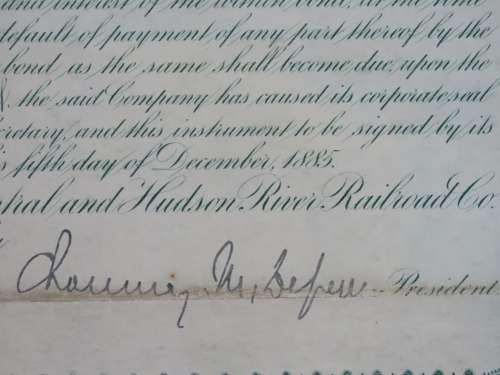 and interest of the within bond, at the time
default of payment of any part thereof by the
bond as the same shall become due, upon the
the said Company has caused its corporate seal
cretary, and this instrument to be signed by its
s fifth day of December, 1885.
ntral and Hudson River Railroad Co.
Chauncey M. Depew President